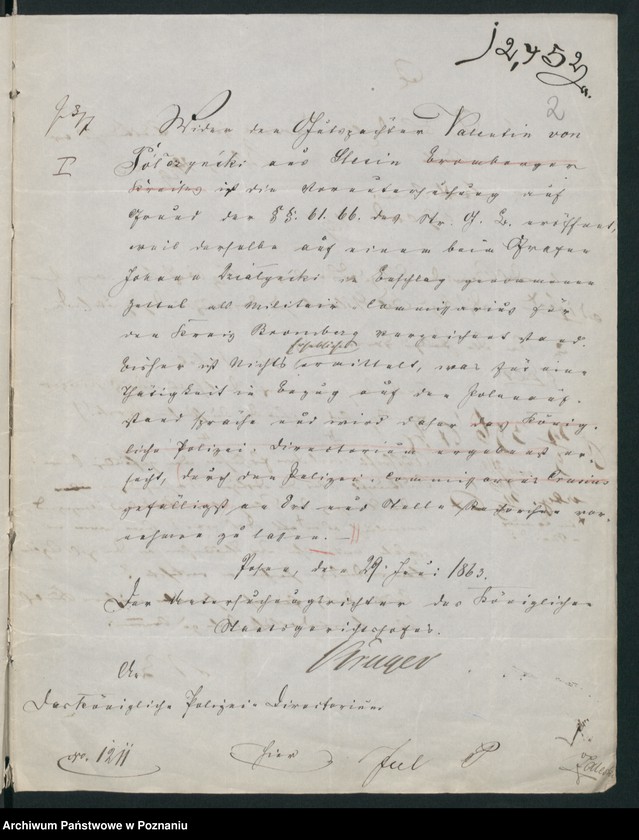 12,452
2
I
Wider den Gutspächter Valentin von
aus Bromberger
Kreises ist die Voruntersuchung auf
Grund der §§. 61. 66. des Str. G. B. eröffnet,
weil derselbe auf einem beim Grafen
Johann Dzialynski in Beschlag genommenen
Zettel als Militair Commissarius für
den Kreis Bromberg verzeichnet stand.
Bisher ist Nichts ermittelt, was für eine
Thätigkeit in Bezug auf den Polenauf-
stand spräche und wird daher das König-
liche Polizei-Directorium ergebenst er-
sucht, durch den Polizei-Commissarius
gefälligst an Ort und Stelle vor-
nehmen zu lassen.
Posen, den 29 Juni 1863.
Der Untersuchungsrichter des Königlichen
Staatsgerichtshofes.
Krüger
An
Das Königliche Polizei-Directorium
no. 1211
hier
Archiwum Państwowe w Poznaniu